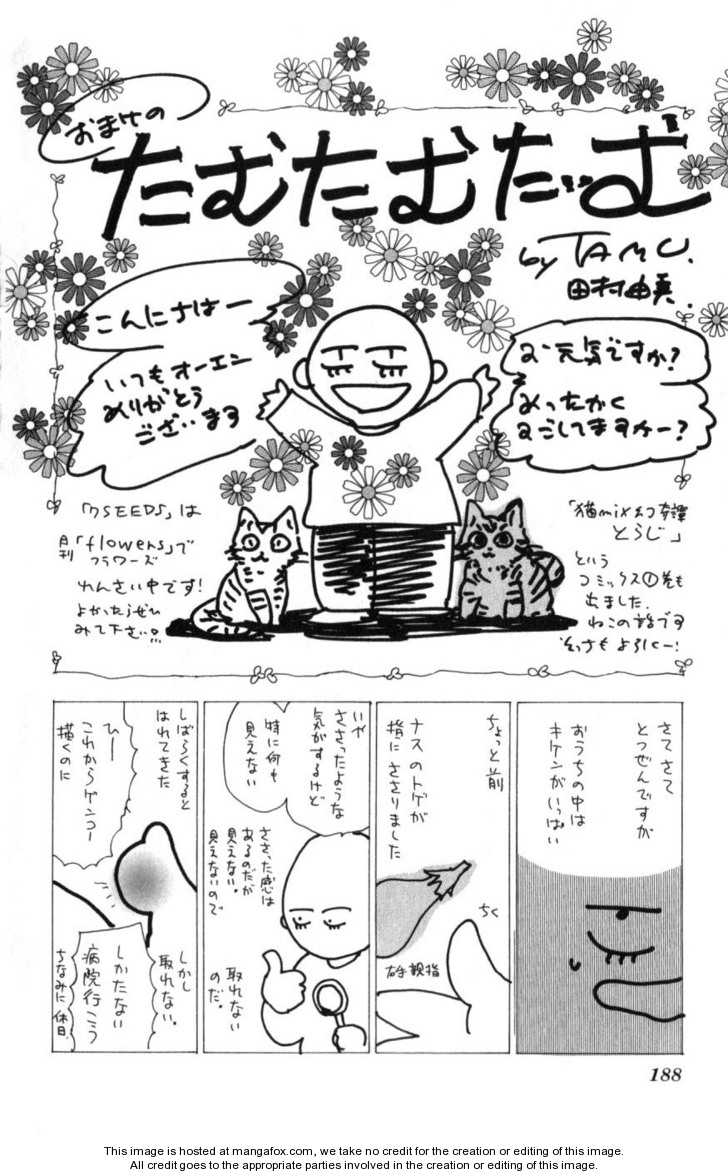 おまけの
たむたむたいむ
by TAMU.
田村由美
こんにちはー
いつもオーエン
ありがとう
ございます
お元気ですか?
あったかく
すごしてますかー?
「7SEEDS」は
月刊「flowers」で
フラワーズ
れんさい中です!
よかったらぜひ
みて下さい。
「猫mix幻奇譚
とらじ」
という
コミックス①巻も
出ました。
ねこの話です
そっちもよろしくー!
さてさて
とつぜんですが
おうちの中は
キケンがいっぱい
ちょっと前
ナスのトゲが
指にささりました
ちく
右手親指
いや
ささったような
気がするけど
特に何も
見えない
ささった感は
あるのだが
見えない。
見えないので
取れない
のだ。
しばらくすると
はれてきた
ひー
これからゲンコー
描くのに
しかし
取れない。
しかたない
病院行こう
ちなみに休日。
188
This image is hosted at mangafox.com, we take no credit for the creation or editing of this image.
All credit goes to the appropriate parties involved in the creation or editing of this image.